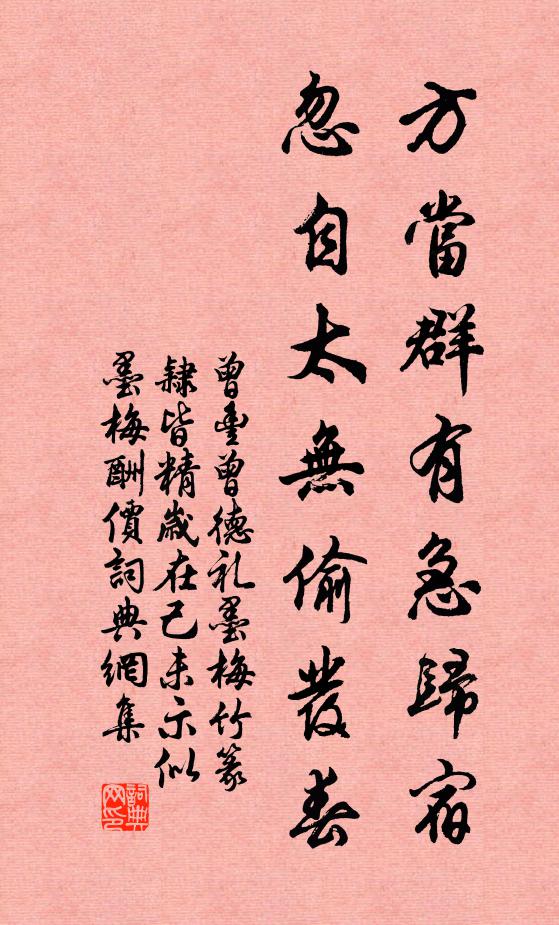 方當群有急歸宿
忽自太無偷發春
曾豐曾德礼墨梅竹篆
隸皆精歲在己未示似
墨梅酬價詞典網集
詞典網印